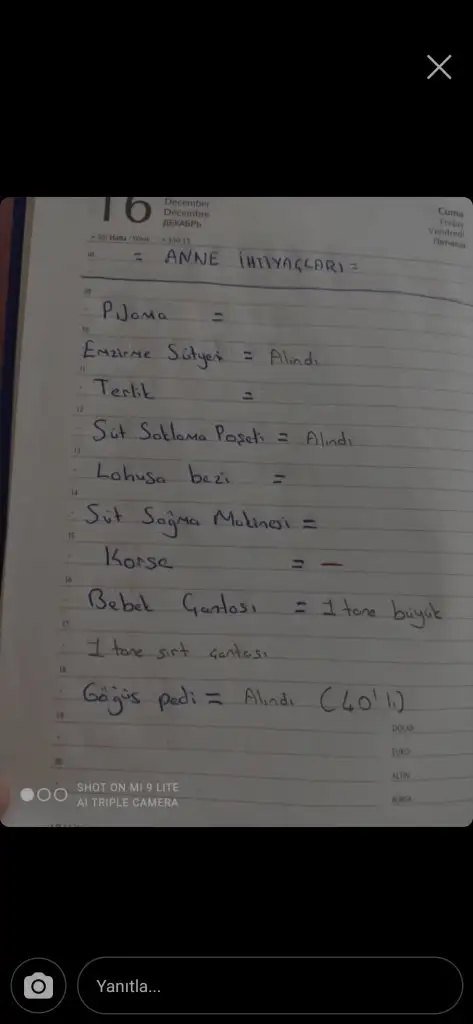 16
December
Décembre
ДЕКАБРЬ
Cuma
Friday
Vendredi
= ANNE İHTİYAÇLARI =
Pijama =
Emzirme Sütyeni = Alındı
Terlik =
Süt Saklama Poşeti = Alındı
Lohusa bezi =
Süt Sağma Makinesi =
Korse = -
Bebek Çantası = 1 tane büyük
1 tane sırt çantası
Göğüs pedi = Alındı (40'lı)
DOLAR
EURO
ALTIN
SHOT ON MI 9 LITE
AI TRIPLE CAMERA
Yanıtla...